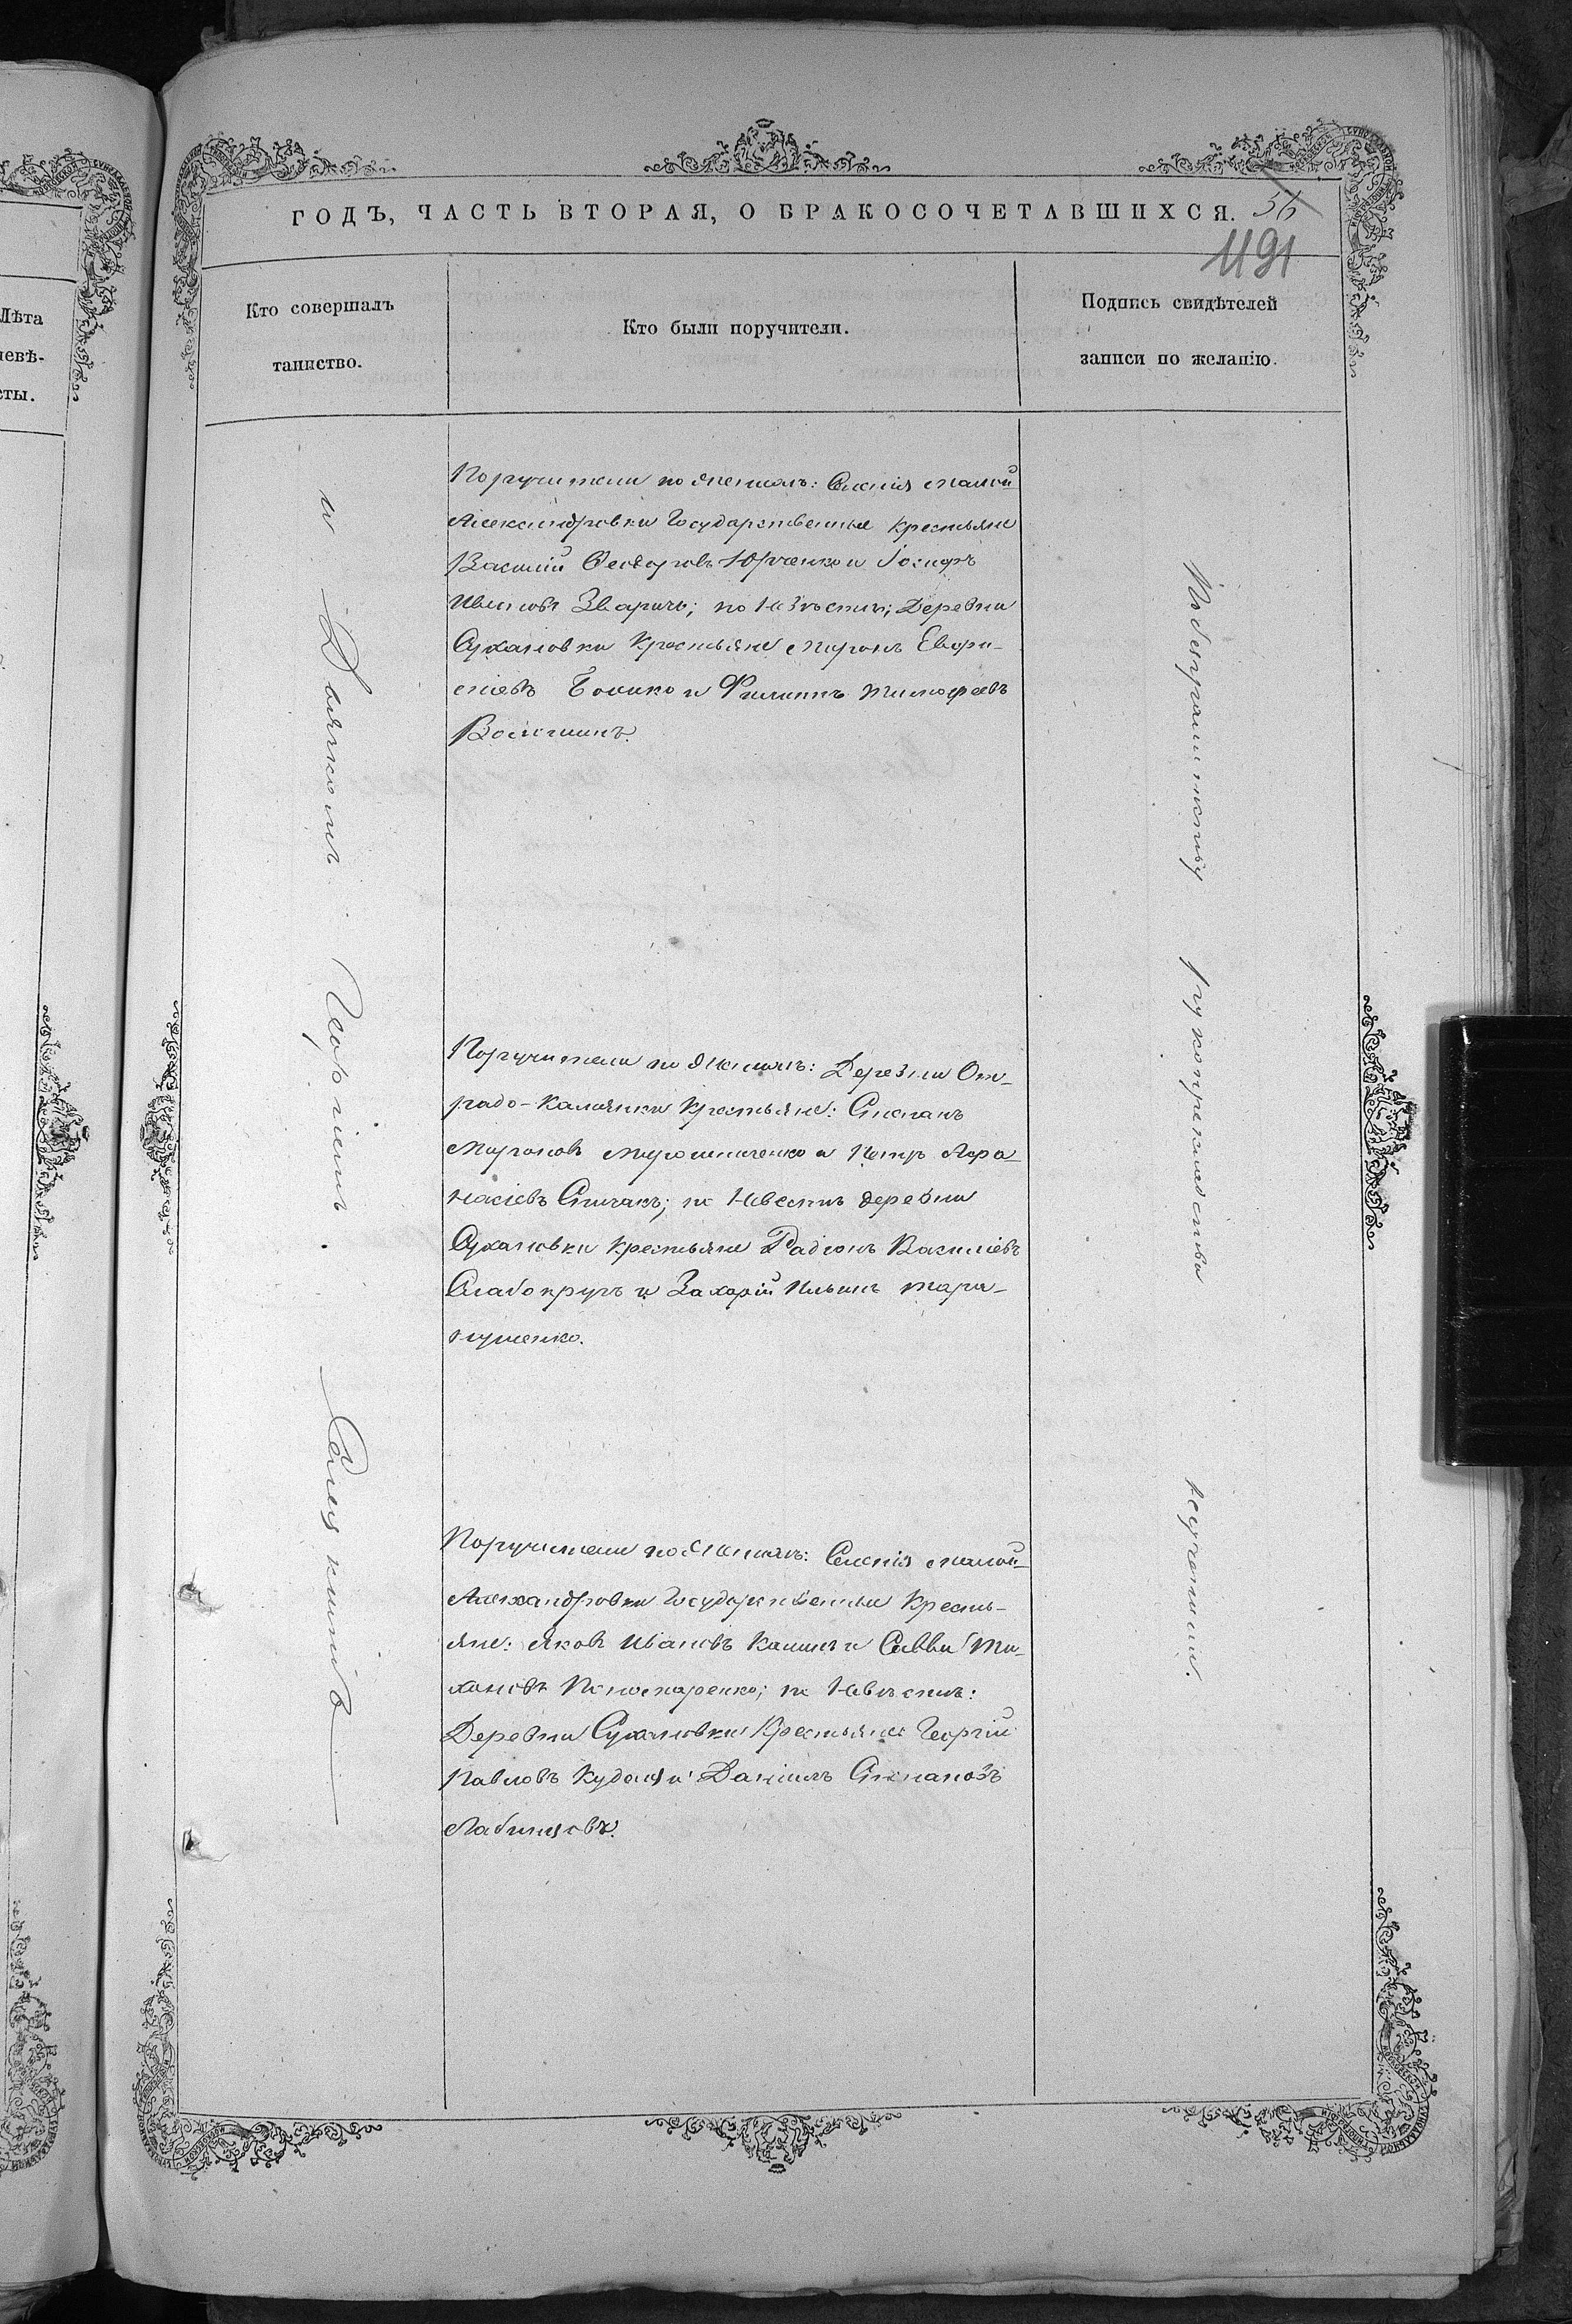 Лѣта
невѣ-
сты.
ГОДЪ, ЧАСТЬ ВТОРАЯ, О БРАКОСОЧЕТАВШИХСЯ.
56
1191
Кто совершалъ
таинство.
Кто были поручители.
Подпись свидѣтелей
записи по желанію.
и Дьячкомъ Георгіемъ
Поручители по Женихѣ: Селенія Малой
Александровки Государственные крестьяне
Василій Феодоровъ Юрченко и Іосифъ
Ивановъ Зваричъ; по Невѣстѣ; Деревни
Сухановки Крестьяне Миронъ Евфи-
міевъ Бойко и Филиппъ Тимофеевъ
Волошинъ.
Поручители по Женихѣ: Деревни От-
радо-Калянки Крестьяне: Степанъ
Мироновъ Мирошниченко и Петръ Афа-
насіевъ Спичакъ; по Невестѣ деревни
Сухановки крестьяне Радіонъ Василіевъ
Слабокругъ и Захарій Ильинъ Тара-
нушенко.
Поручители по Женихѣ: Селенія Малой-
Александровки Государственные Кресть-
яне: Яковъ Ивановъ Капинъ и Савва Ти-
хоновъ Пономаренко; по Невѣстѣ:
Деревни Сухановки Крестьяне Георгій
Павловъ Кудоля и Даніилъ Степановъ
Лабинцовъ.
По безграмотству рукоприкладства неучинили.